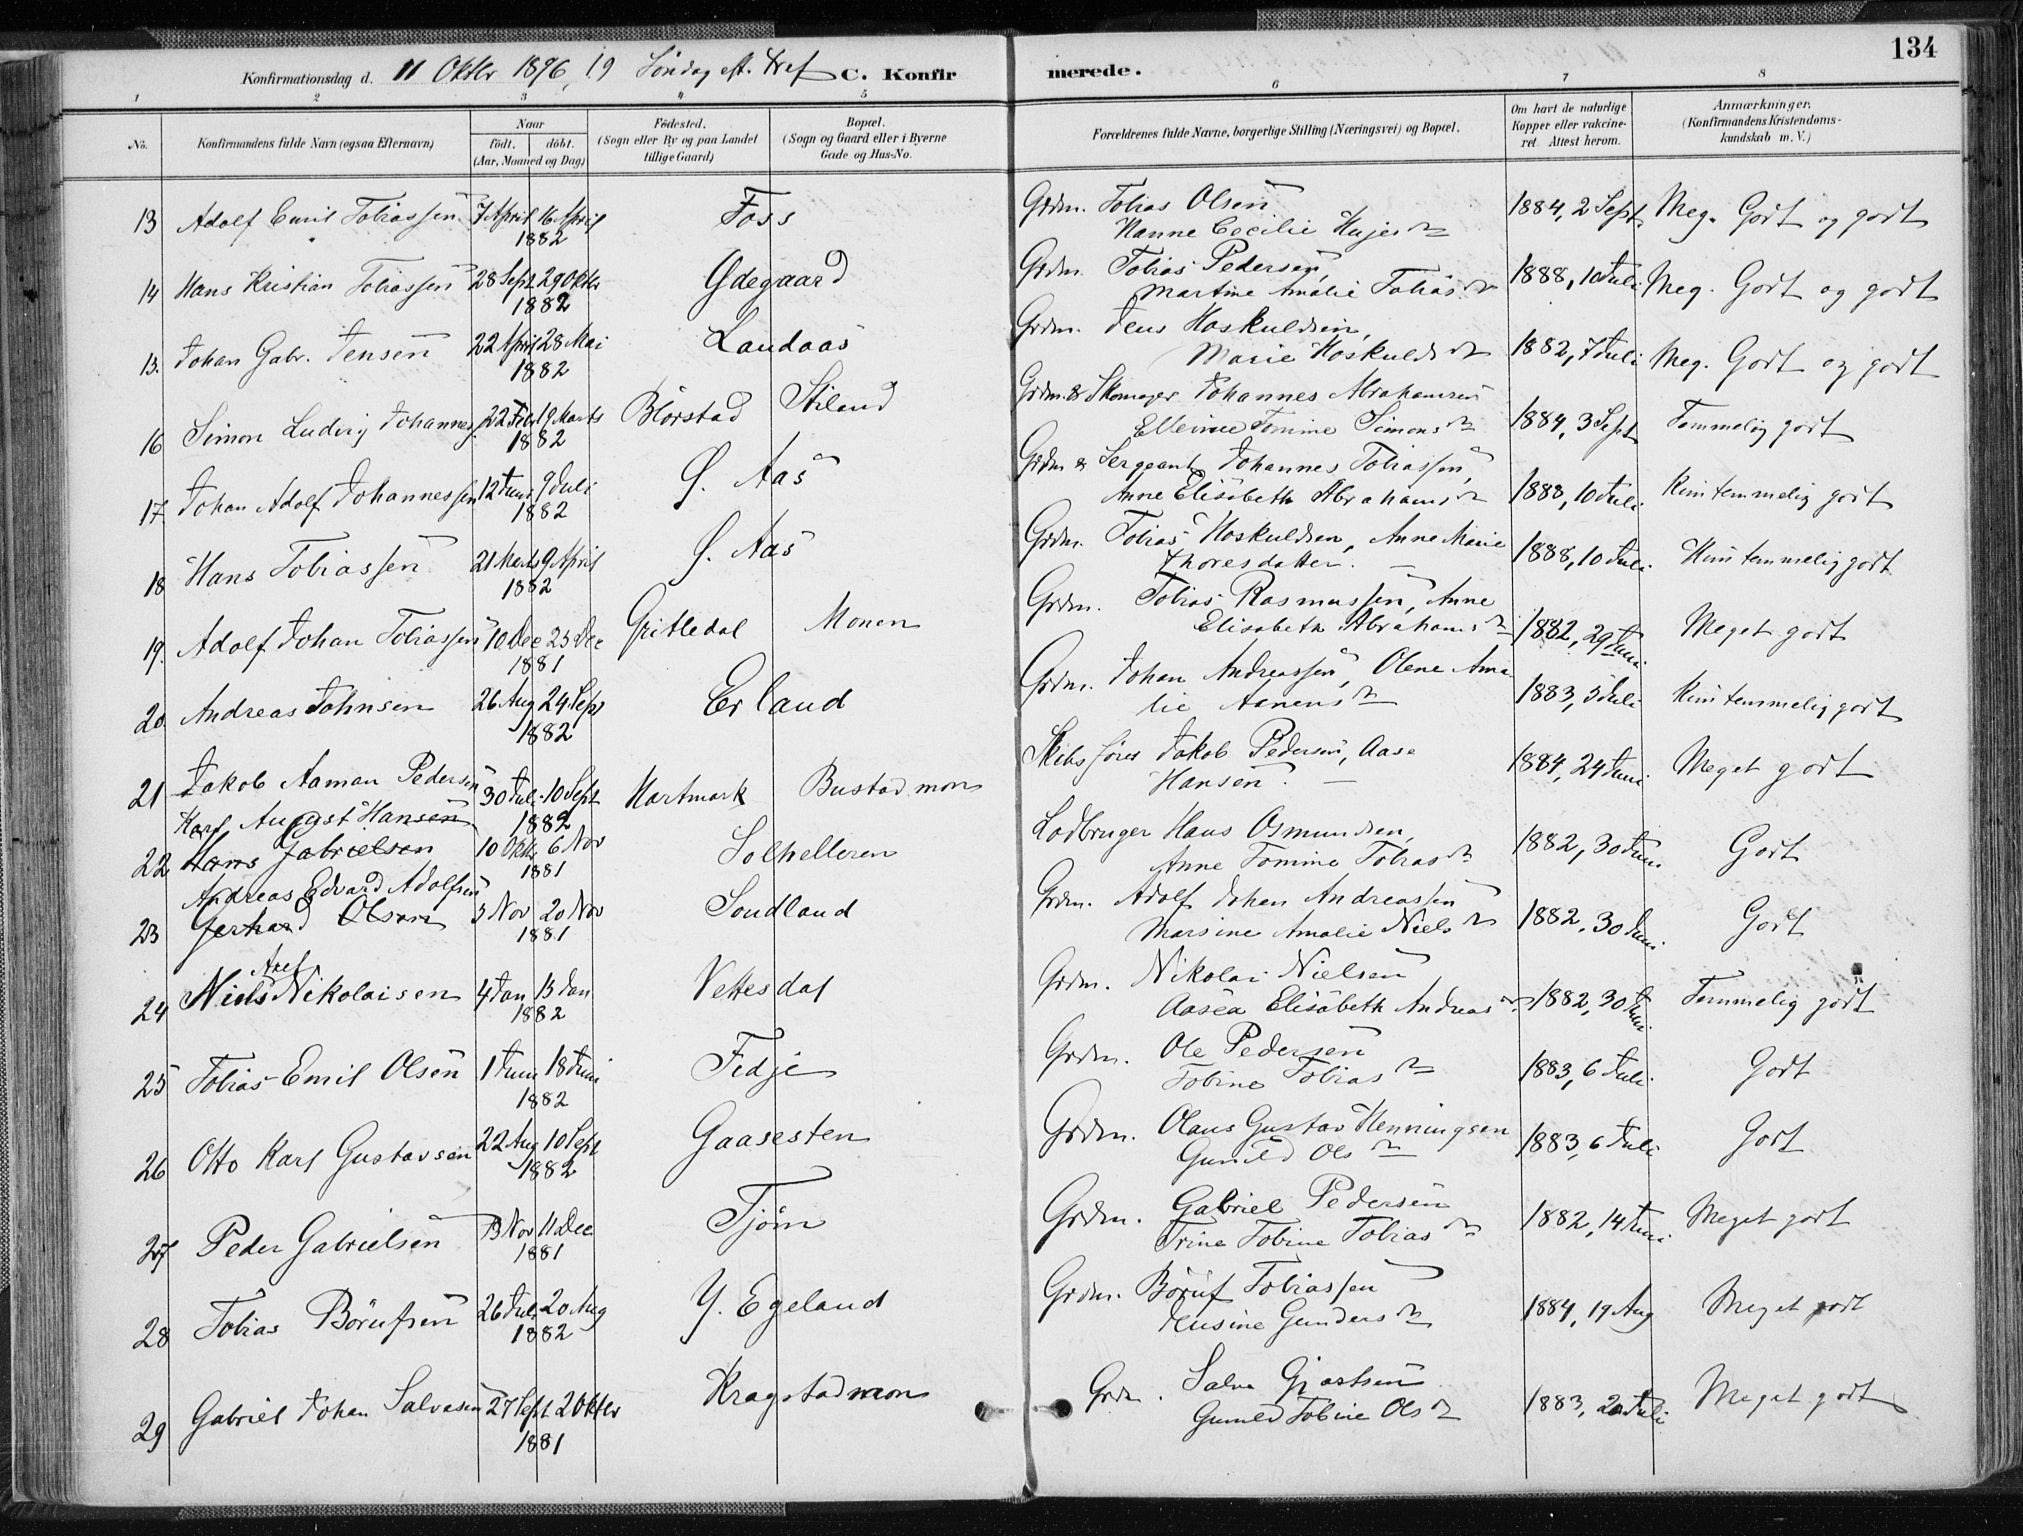 134
Konfirmationsdag d. 11 Oktbr 1896, 19 Søndag eft. Tref C. Konfirmerede.
1 2 3 4 5 6 7 8
No. Konfirmandens fulde Navn (ogsaa Efternavn) Naar födt. döbt. (Aar, Maaned og Dag) Födested. (Sogn eller By og paa Landet tillige Gaard) Bopæl. (Sogn og Gaard eller i Byerne Gade og Hus-No. Forældrenes fulde Navne, borgerlige Stilling (Næringsvei) og Bopæl. Om havt de naturlige Kopper eller vakcineret. Attest herom. Anmærkninger. (Konfirmandens Kristendomskundskab m. V.)
13 Adolf Emil Tobiassen 7 April 16 April 1882 Foss Grdm. Tobias Olsen Hanne Cecilie 1884, 2 Sept. Meg. Godt og godt
14 Hans Kristian Tobiassen 28 Sept 29 Oktbr 1882 Ødegaard Grdm. Tobias Pedersen, Martine Amalie Tobiasdtr 1888, 10 Juli Meg. Godt og godt
15. Johan Gabr. Jensen 22 April 28 Mai 1882 Landaas Grdm. Jens Hoskuldsen, Marie Hoskuldsdtr 1882, 7 Juli Meg. Godt og godt
16 Simon Ludvig Johannes. 22 Feb 19 Marts 1882 Bjørstad Stiland Grdm. & Skomager Johannes Abrahamsen Ellevine Tomine Simonsdtr 1884, 3 Sept Temmelig godt
17. Johan Adolf Johannessen 12 Juni 9 Juli 1882 Ø. Aas Grdm & Sergeant Johannes Tobiassen, Anne Elisabeth Abrahamsdtr 1888, 10 Juli. Kun temmelig godt
18 Hans Tobiassen 21 Marts 9 April 1882 Ø. Aas Grdm. Tobias Hoskuldsen, Anne Marie Thoresdatter. 1888, 10 Juli. Kun temmelig godt
19. Adolf Johan Tobiassen 10 Dec 25 Dec 1881 Gritledal Monen Grdm. Tobias Rasmussen, Anne Elisabeth Abrahamsdtr 1882, 29 Juni Meget godt
20. Andreas Johnsen 26 Aug 24 Sept 1882 Erland Grdm. Johan Andreassen, Olene Amalie Aanensdtr 1883, 5 Juli Kun temmelig godt
21 Jakob Aaman Pedersen 30 Juli 10 Sept 1882 Hartmark Bustadmon Skibsfører Jakob Pedersen, Aase Hansen. 1884, 24 Juni. Meget godt
Karl August Hansen
22 Hans Gabrielsen 10 Oktb 6 Nov 1881 Solhelleren Lodbruger Hans Osmundsen, Anne Tomine Tobiasdtr 1882, 30 Juni Godt
Andreas Edvard Adolfsen
23 Gerhard Olsen 3 Nov 20 Nov 1881 Sondland Grdm. Adolf Johan Andreassen Marsine Amalie Nielsdtr 1882, 30 Juni. Godt
Axel
24 Niels Nikolaisen 4 Jan 15 Jan 1882 Vettesdal Grdm. Nikolai Nielsen Aasea Elisabeth Andreasdtr. 1882, 30 Juni Temmelig godt
25 Tobias Emil Olsen 1 Juni 18 Juni 1882 Fedje Grdm. Ole Pedersen Tobine Tobiasdtr 1883, 6 Juli Godt
26 Otto Karl Gustavsen 22 Aug 10 Sept 1882 Gaasesten Grdm. Olaus Gustav Henningsen Gunild Olsdtr 1883, 6 Juli Godt
27 Peder Gabrielsen 13 Nov 11 Dec 1881 Tjøm Grdm. Gabriel Pedersen Trine Tobine Tobiasdtr 1882, 14 Juni Meget godt
28 Tobias Börufsen 26 Juli 20 Aug 1882 Y. Egeland Grdm. Böruf Tobiassen Gundersdtr 1884, 19 Aug Meget godt
29 Gabriel Johan Salvesen 27 Sept 2 Oktbr 1881 Kragstadmon Grdm. Salve Gjertsen Gunild Tobine Olsdtr 1883, 20 Juli Meget godt